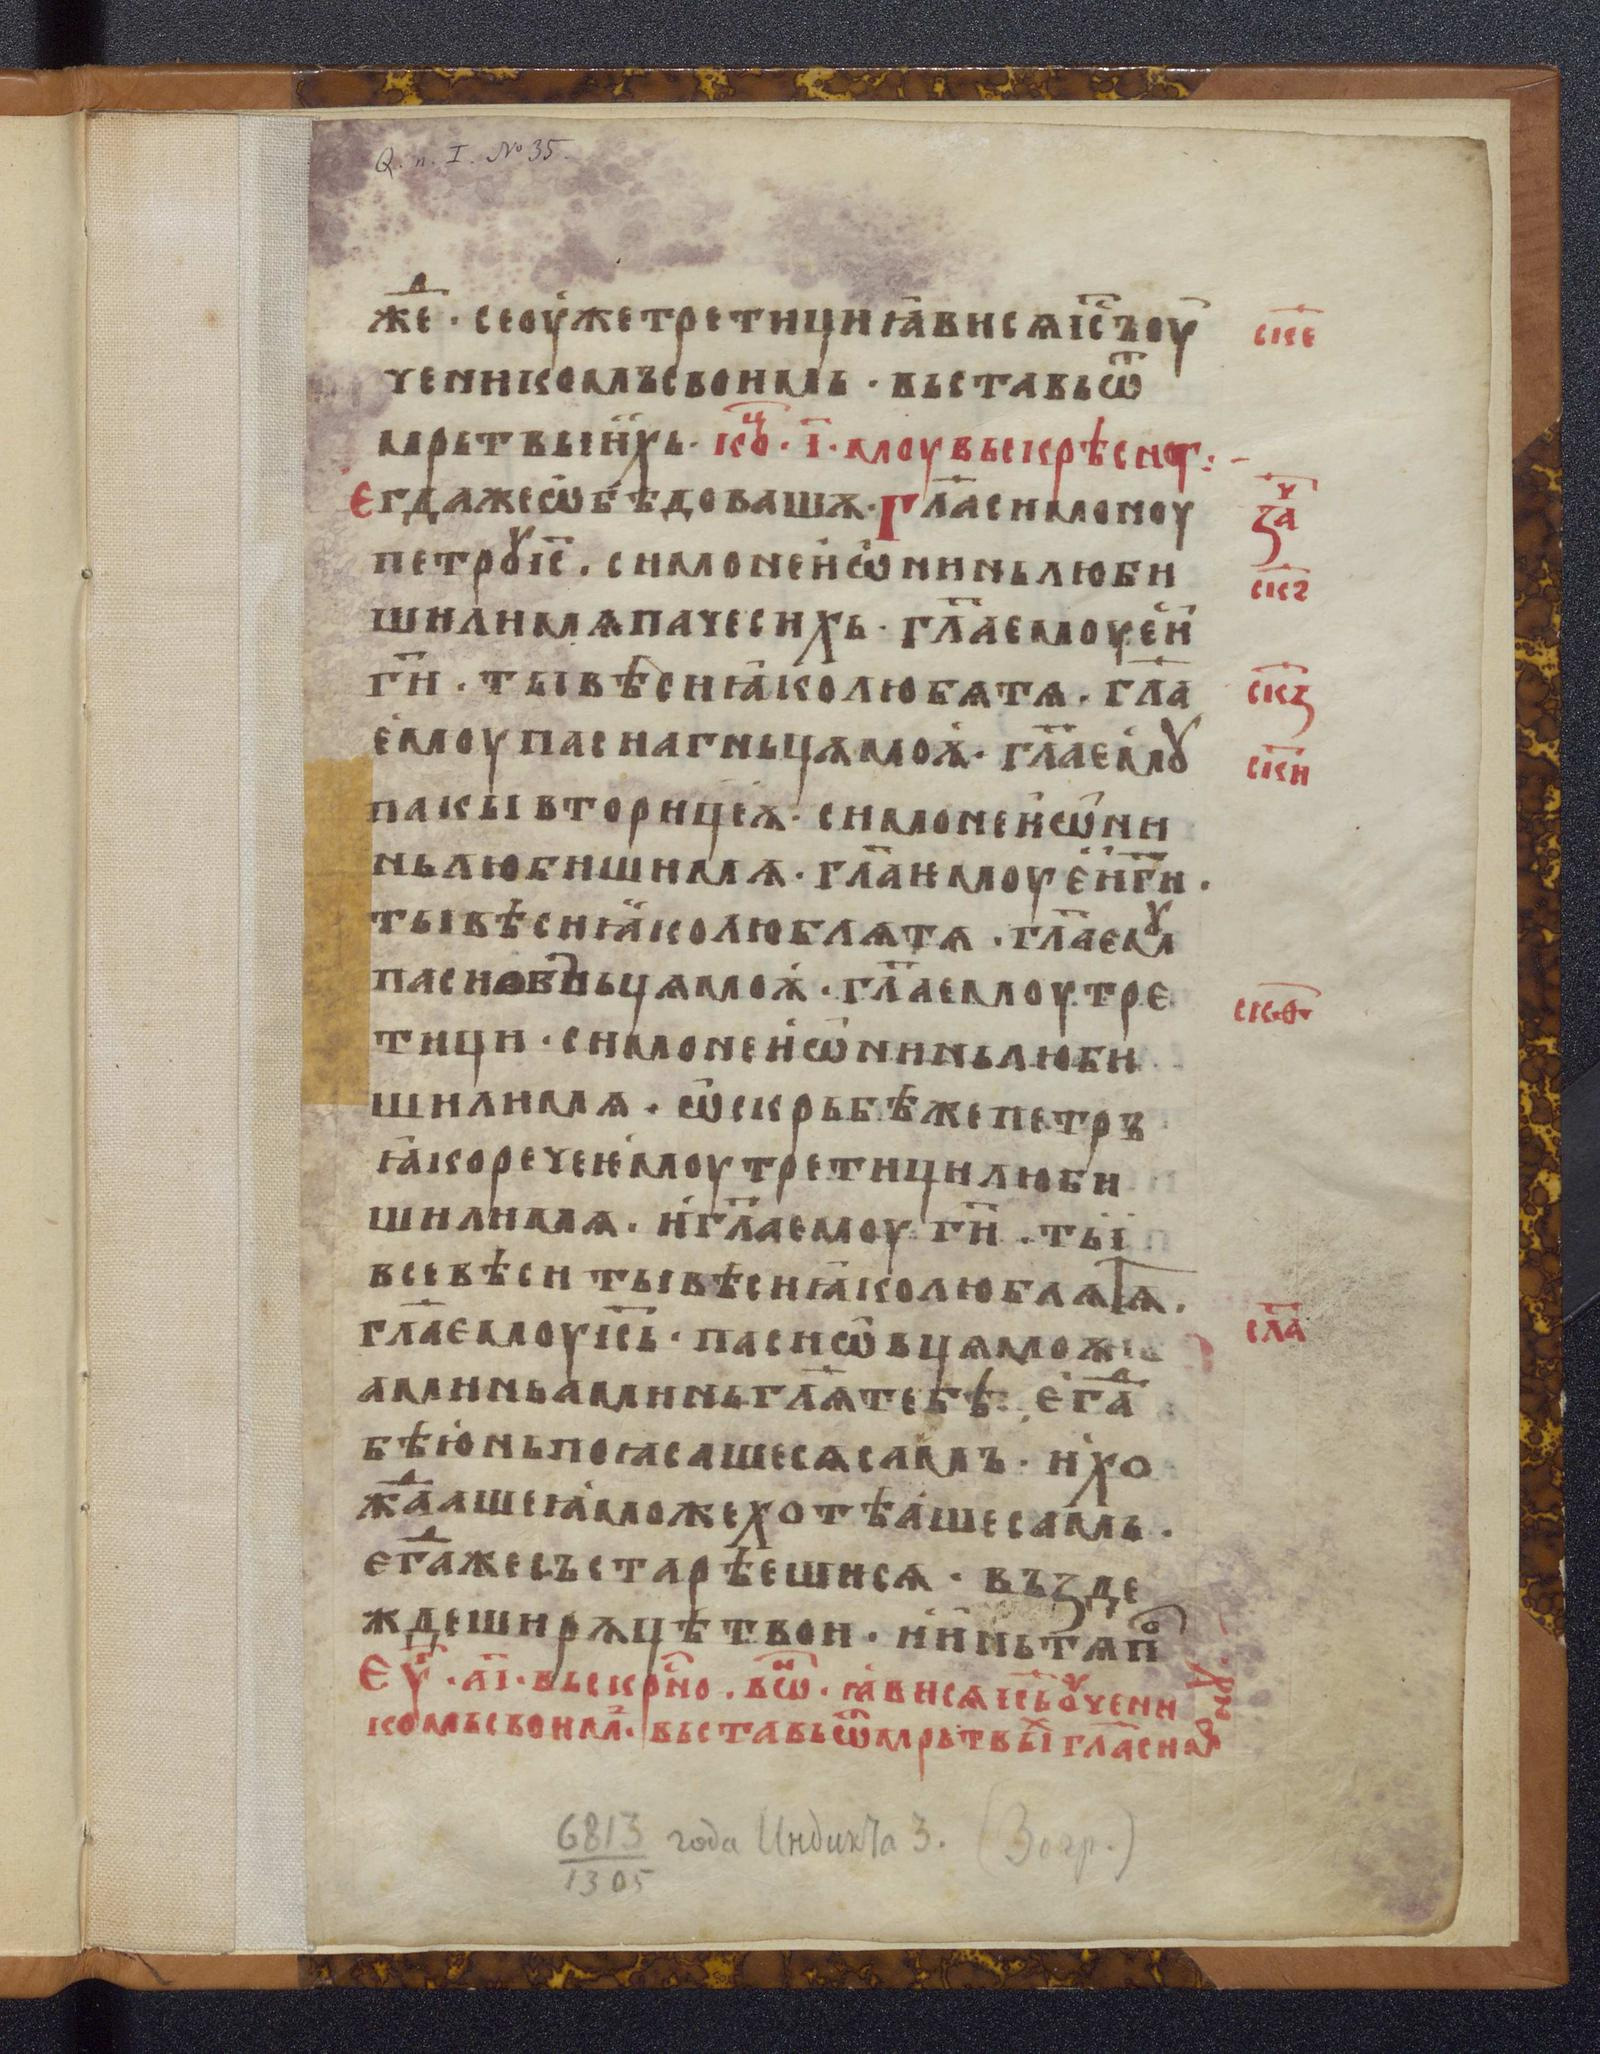 Q. п. I. № 35.
жеⷣ · сеоу҆жетретицнꙗ҆виса̑іс҃ъоу
ченикомъсвоимь · вьставьѿ
мрьтвыи҆хь · коⷰ҇ · і҃ · моувьскрѣсноу :–
егдажеѡбѣдовашѫ · гл҃асимоноу
петрꙋіс҃ · симонеи҆ѡ҆ниньлюби
шилимѧпачесихь · гл҃аемоуе҆и҆
ги҃ · тывѣсиꙗ҆колюбѧтѧ · гл҃а
е҆моупасиагньцѧмоѫ҆ · гл҃аем҆ꙋ
пакывторице҆ѫ · симонеи҆ѡ҆ни
ньлюбишимѧ · гл҃аꙗмоуе҆и҆ги҃ ·
тывѣсиꙗ҆колюблѧтѧ · гл҃аемꙋ
пасиовⸯньцѧмоѫ҆ · гл҃аемоутре
тици · симонеи҆ѡ҆ниньлюби
шилимѧ · ѡ҆скрьбѣжепетръ
ꙗ҆коречеꙗмоутретицилюби
шилимѧ · и҆гл҃аемоуги҃ · тыі
всевѣси тывѣсиꙗ҆колюблѧтѧ ·
гл҃аемоуіс҃ь · пасиѡ҆вцѧмоѫ
аминьаминьгл҃ѧтебѣ · е҆гⷣа
бѣю҆ньпоꙗсашесѧсамъ · и҆хо
жⷣаашеꙗ҆можехотѣа҆шесамь ·
егⷣажесъстарѣешисѧ · въздe
ждеширѫцѣтвои · и҆и҆ньтѧпⷪ
Еѵ҃ · а҃і · вьскрⸯно · вⸯѿ · ꙗ҆висѧіс҃ьꙋчени
комьсвоимⸯ · вьставьѿмрьтвыⷯігл҃асимⷪ
ск҃е
заⷱ҇
ск҃г
ск҃з
ск҃и
ск҃ѳ
сл҃а
6813 года Индикта 3. (Зогр.)
1305